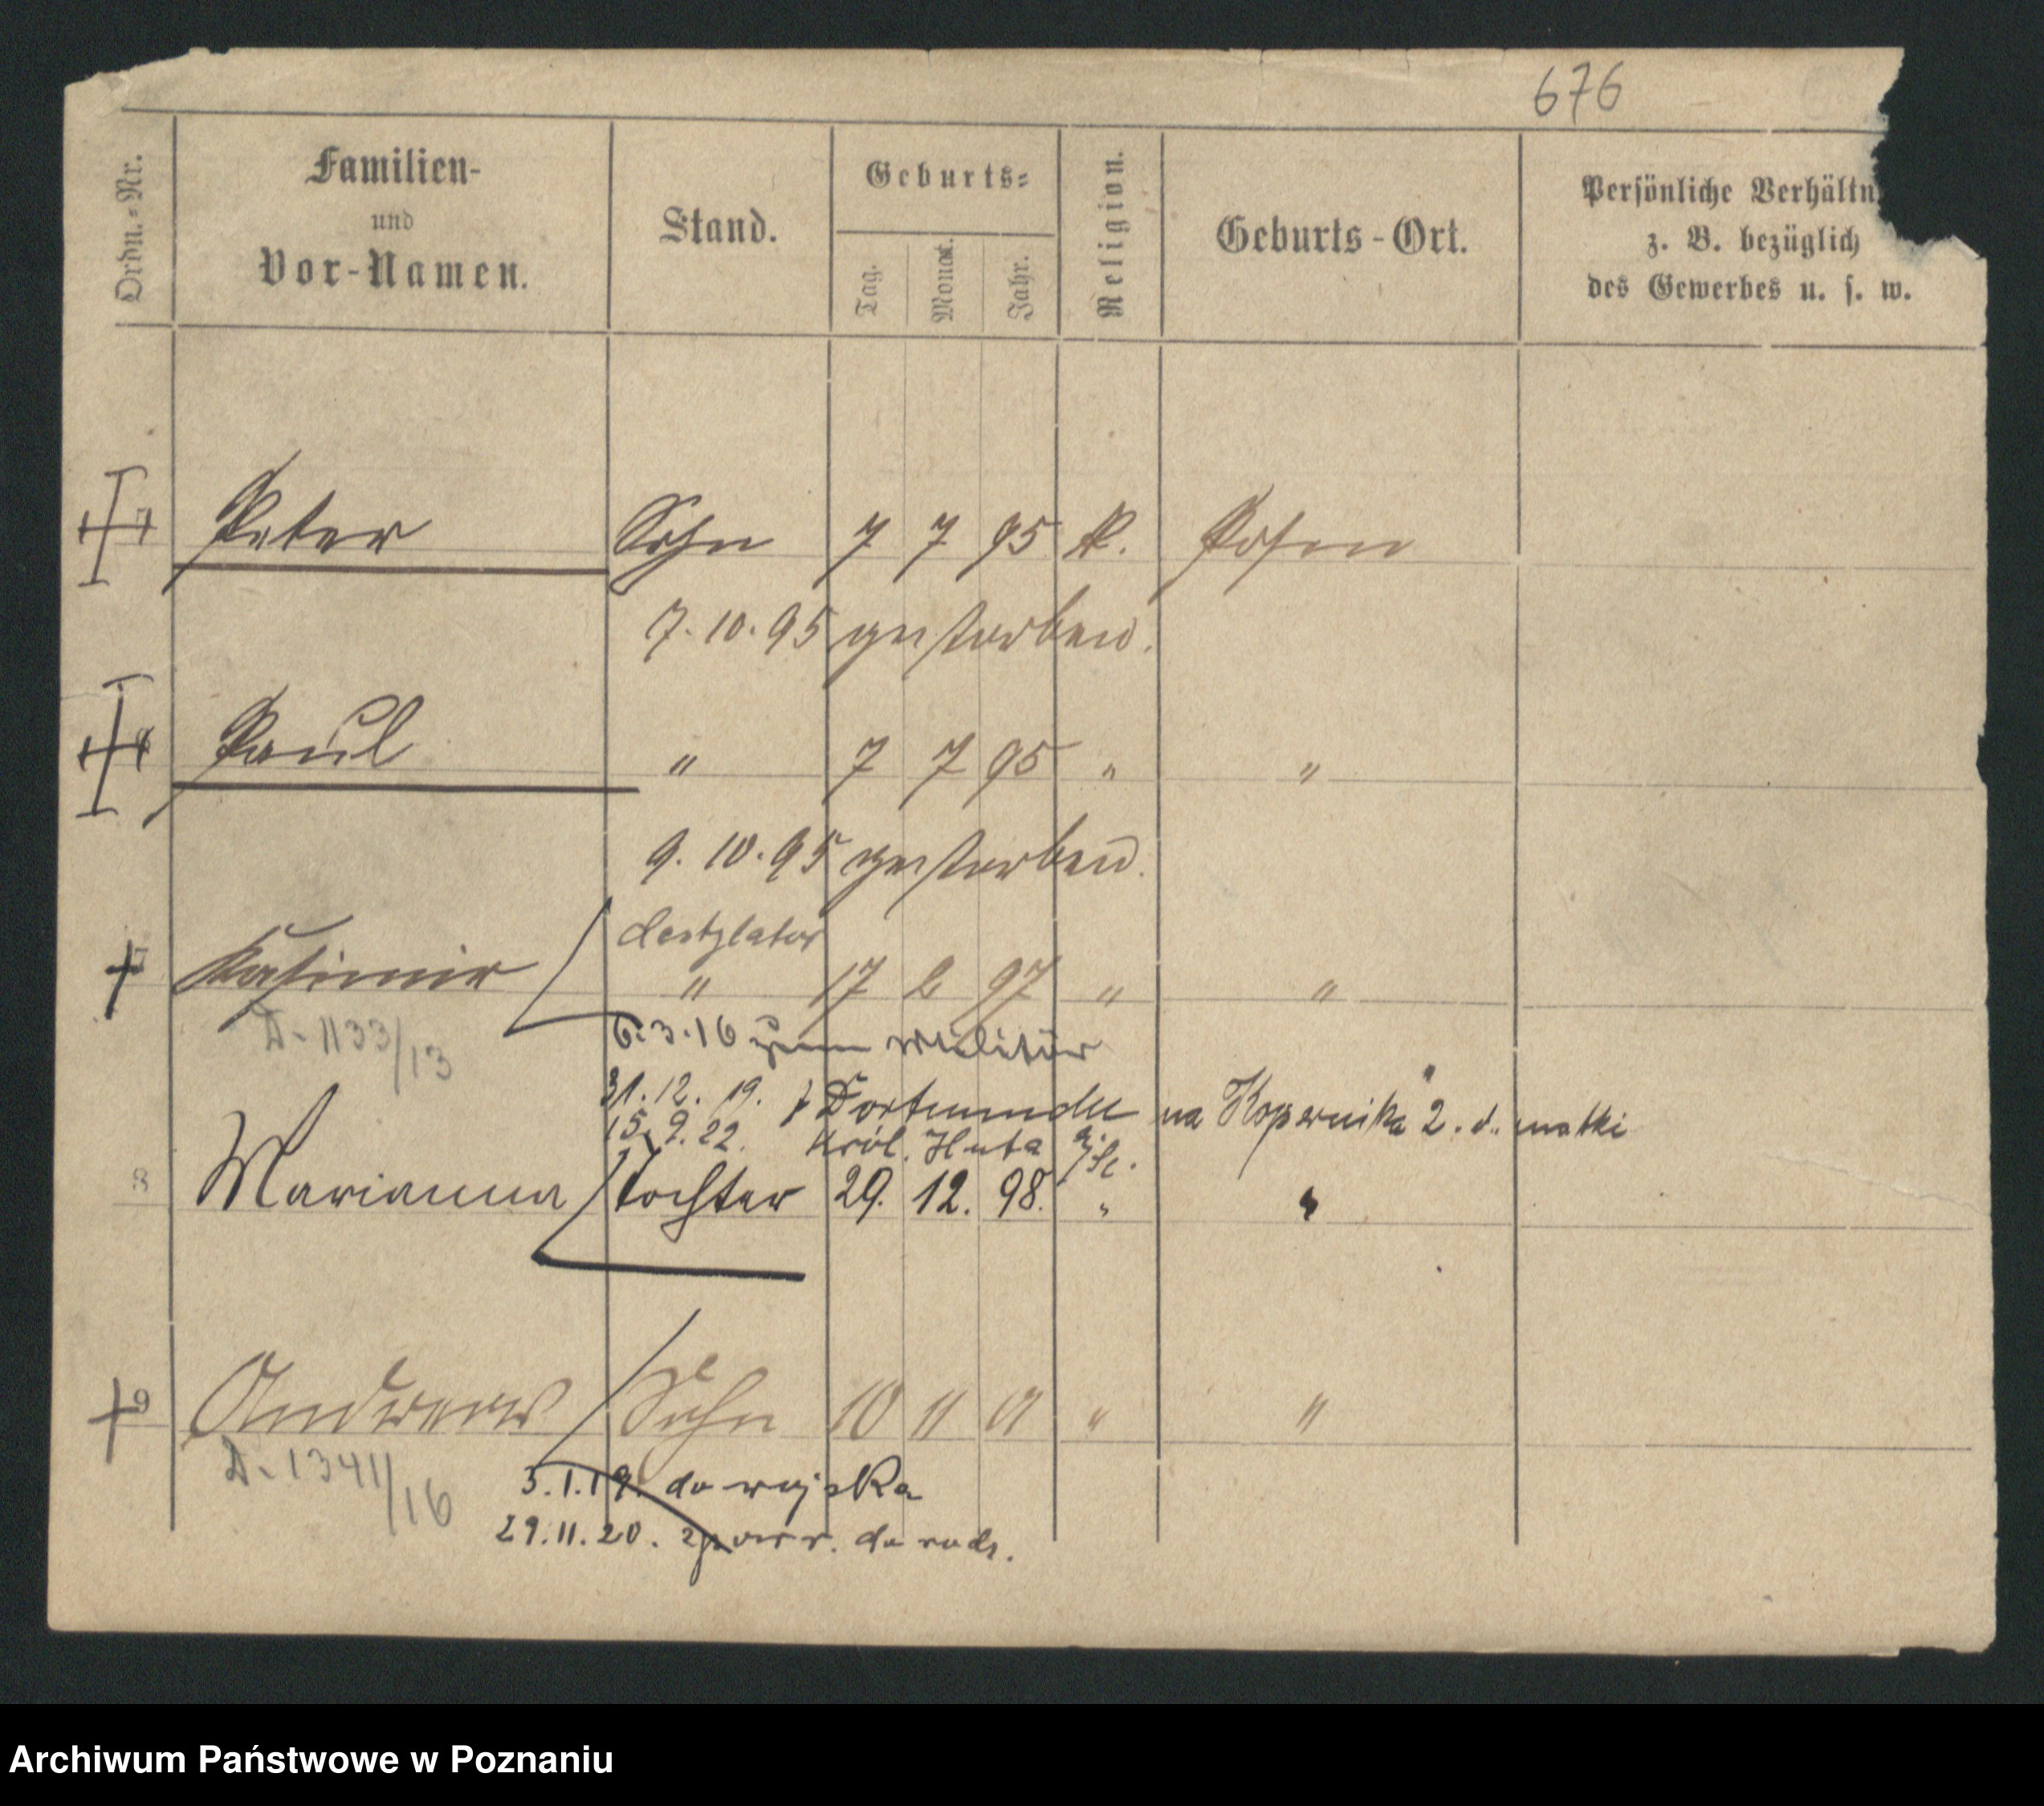 676
Ordn.-Nr.
Familien-
und
Vor-Namen.
Stand.
Geburts-
Tag.
Monat.
Jahr.
Religion.
Geburts-Ort.
Persönliche Verhältn
z. B. bezüglich
des Gewerbes u. s. w.
Peter Sohn 7 7 95 K. Posen
7.10.95 gestorben.
Paul " 7 7 95 " "
9.10.95 gestorben.
destylator
Kasimir " 17 2 97 " "
6.3.16 zum Militär
A-1133/13
31.12.19. Dortmundu na Kopernika 2. d. matki
15.9.22. Król. Huta
8 Marianna Tochter 29. 12. 98. " "
9 Andreas Sohn 10 11 01 " "
A-1341/16
3.1.19. do wojska
29.11.20. z powr. do rodz.
Archiwum Państwowe w Poznaniu